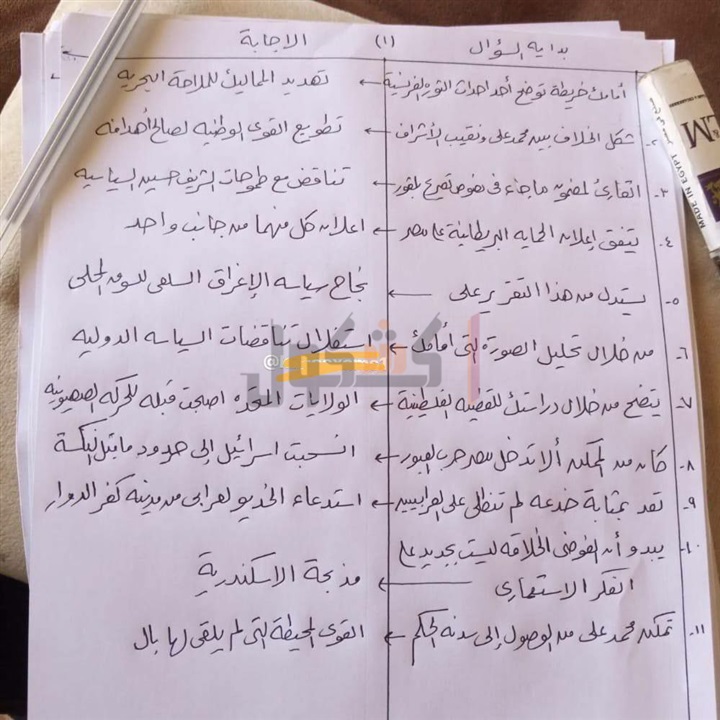 بداية السؤال (١) الإجابة
أمامك خريطة توضح أحد أحداث الثورة الفرنسية ← تهديد المماليك للملاحة البحرية
٢- شكل الخلاف بين محمد على ونقيب الأشراف ← تطويع القوى الوطنية لصالح أهدافه
٣- القارئ لمضمون ما جاء فى نصوص تصريح بلفور ← تناقض مع طموحات الشريف حسين السياسية
٤- يتفق إعلان الحماية البريطانية على مصر ← اعلان كل منهما من جانب واحد
٥- يستدل من هذا التقرير على ← نجاح سياسه الإغراق السلعى للسوق المحلى
٦- من خلال تحليل الصورة التى أمامك ← استغلال تناقضات السياسه الدوليه
٧- يتضح من خلال دراستك للقضية الفلسطينية ← الولايات المتحده اصبحت قبله للحركه الصهيونيه
٨- كان من الممكن ألا تدخل مصر حرب العبور ← انسحبت اسرائيل إلى حدود ما قبل النكسة
٩- تعد بمثابة خدعه لم تنطلى على العرابيين ← استدعاء الخديو لعرابى من مدينه كفر الدوار
١٠- يبدو أن الفوضى الخلاقه ليست بجديد على
الفكر الاستعمارى ← مذبحة الاسكندرية
١١- تمكن محمد على من الوصول إلى سدنه الحكم ← القوى المحيطة التى لم يلقى لها بال
كشكول
EM
MADE IN EGYPT